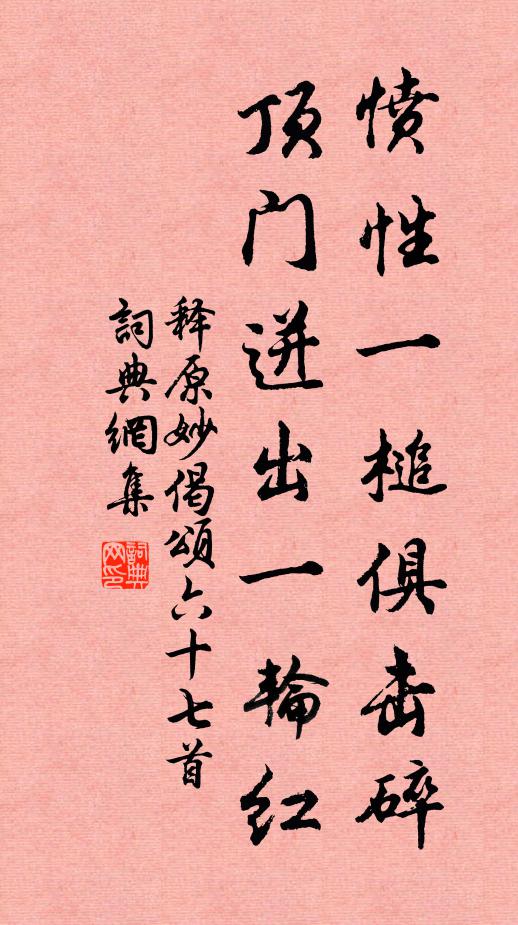 愤性一槌俱击碎
顶门迸出一轮红
释原妙偈颂六十七首
詞典網集
詞典網印